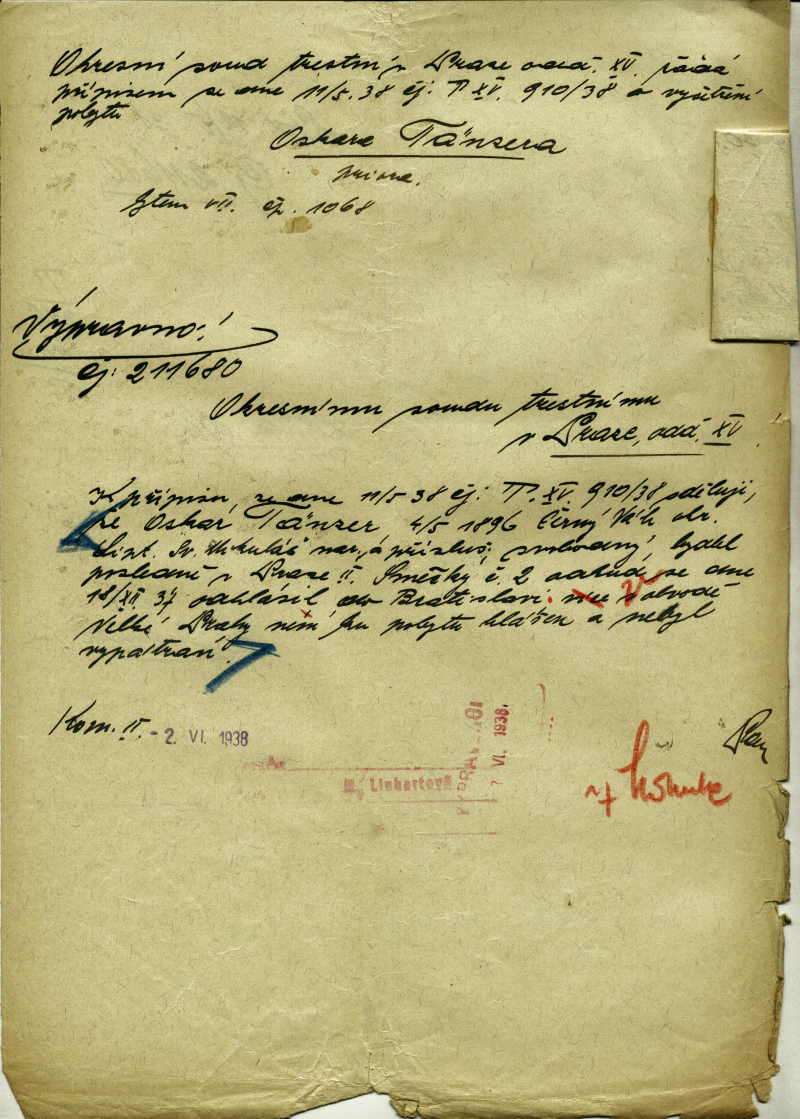 Okresní soud trestní v Praze odd. XV. žádá
přípisem ze dne 11/5. 38 čj: T XV. 910/38 o vyšetření
pobytu
Oskara Tänzera
čp. 1068
Výpravno!
čj: 211680
Okresnímu soudu trestnímu
v Praze, odd. XV.
K přípisu ze dne 11/5 38 čj: T. XV. 910/38 sděluji,
že Oskar Tänzer 4/5 1896 Černý Váh okr.
Lipt. Sv. Mikuláš nar. a přísluš. svobodný, bydlel
posledně v Praze II. Smečky č. 2 odkud se dne
18/XII 37 odhlásil do Bratislavi. V obvodě
Velké Prahy není ku pobytu hlášen a nebyl
vypátrán.
Kom. II. - 2. VI. 1938
VI. 1938
M. Linhartová